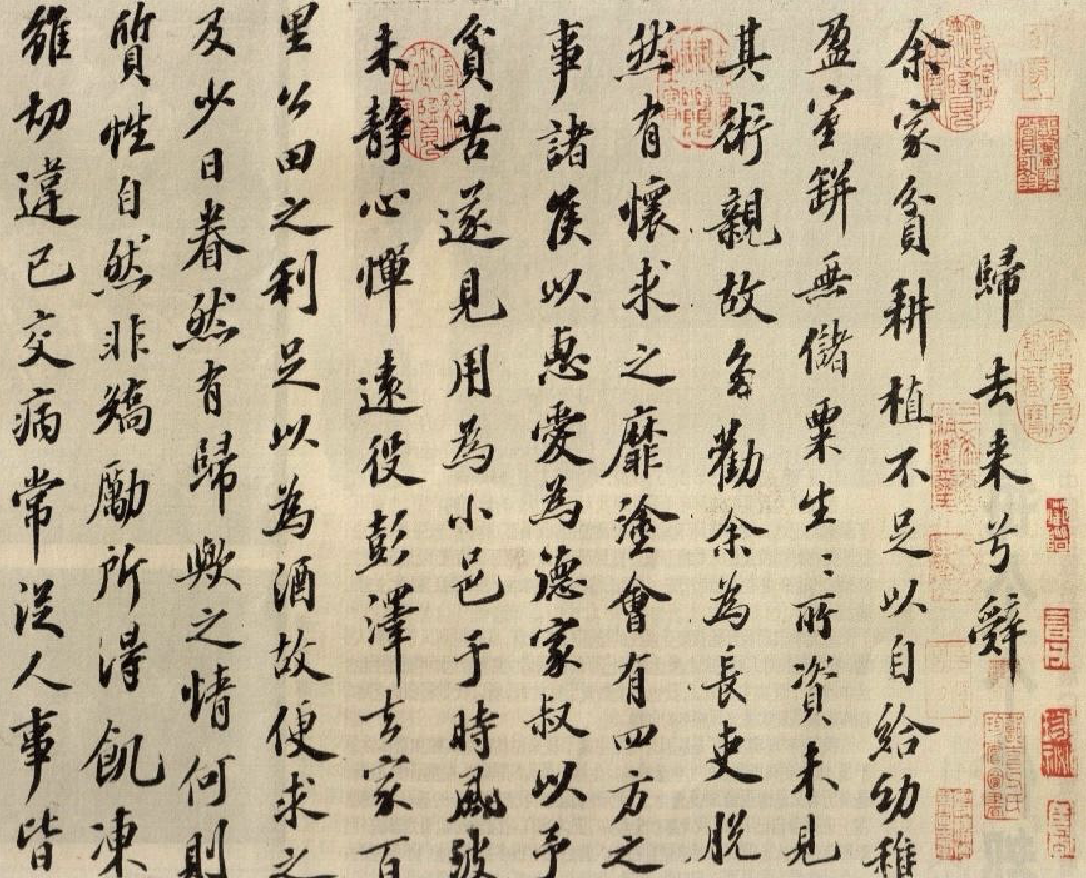 歸去来兮辭
余家貧耕植不足以自給幼稚
盈室缾無儲粟生〻所資未見
其術親故多勸余為長吏脱
然有懷求之靡塗會有四方之
事諸侯以惠愛為德家叔以予
貧苦遂見用為小邑于時風波
未静心憚遠役彭澤去家百
里公田之利足以為酒故便求之
及少日眷然有歸歟之情何則
質性自然非矯勵所得飢凍
雖切違己交病常従人事皆